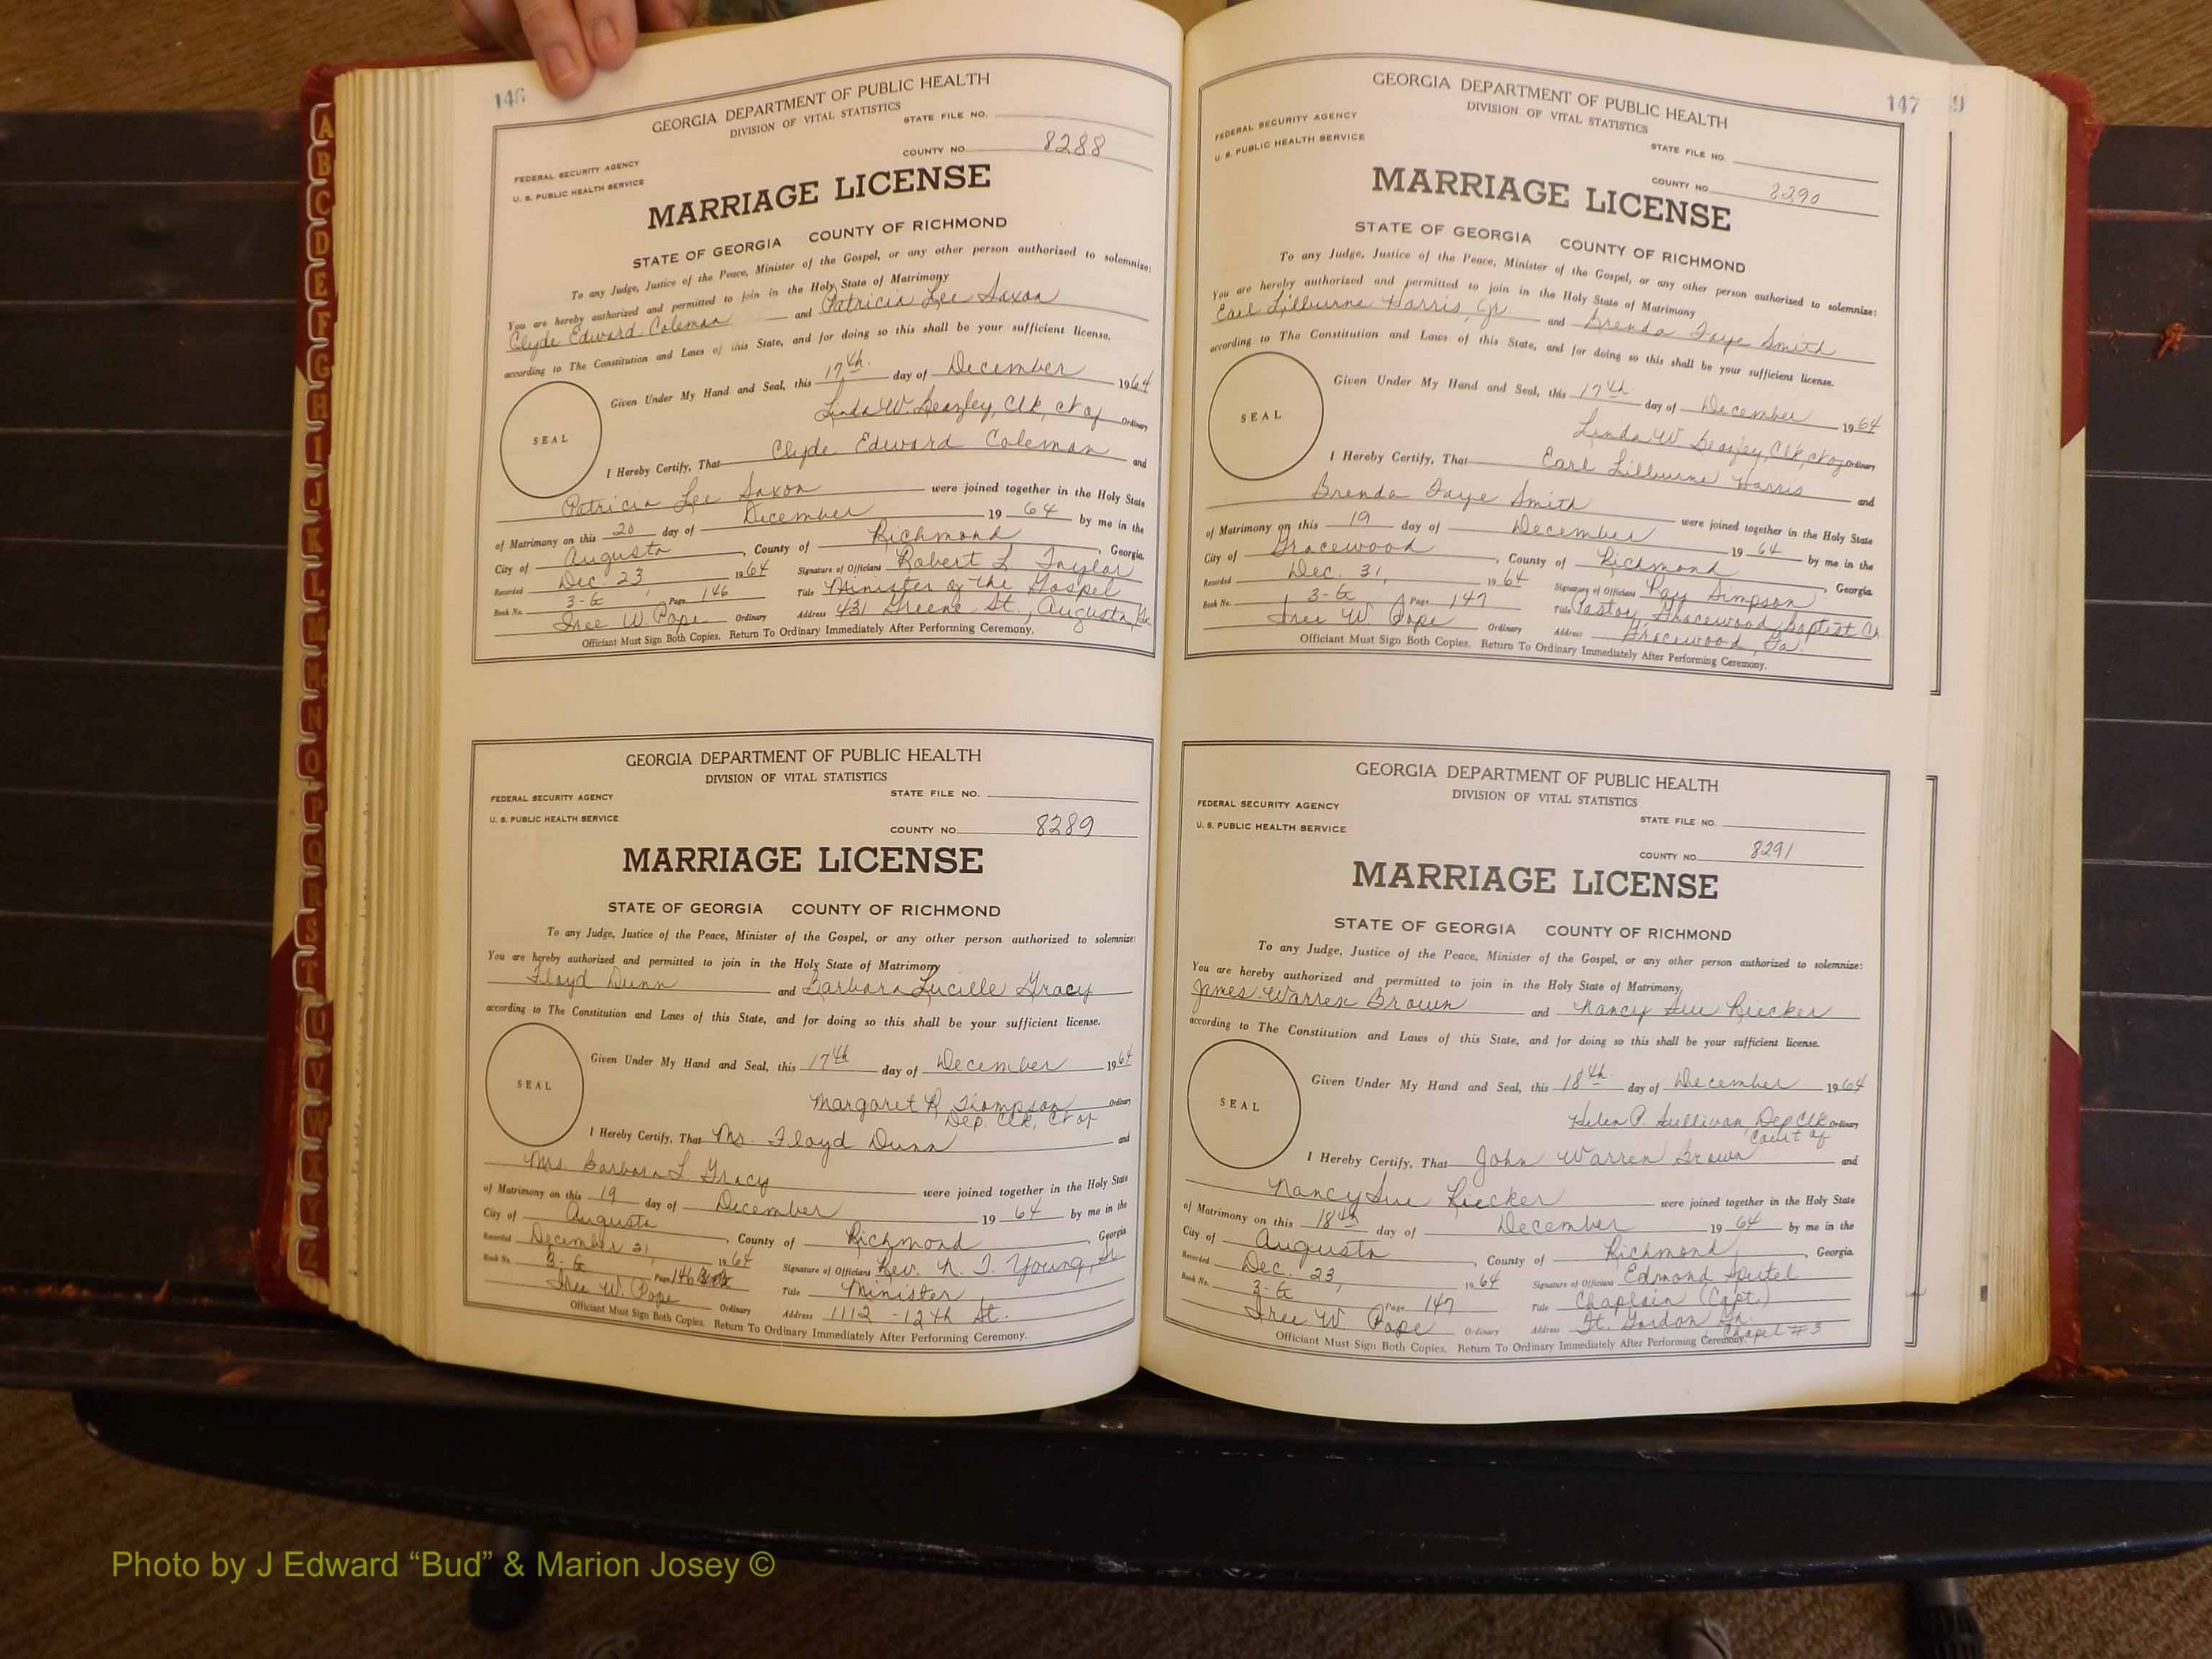 146
GEORGIA DEPARTMENT OF PUBLIC HEALTH
DIVISION OF VITAL STATISTICS
STATE FILE NO.
FEDERAL SECURITY AGENCY
U. S. PUBLIC HEALTH SERVICE
COUNTY NO. 8288
MARRIAGE LICENSE
STATE OF GEORGIA COUNTY OF RICHMOND
To any Judge, Justice of the Peace, Minister of the Gospel, or any other person authorized to solemnize:
You are hereby authorized and permitted to join in the Holy State of Matrimony
Clyde Edward Coleman and Patricia Lee Saxon
according to The Constitution and Laws of this State, and for doing so this shall be your sufficient license.
Given Under My Hand and Seal, this 17th day of December 1964
SEAL
Linda W. Beazley, Clk, Ct of Ordinary
I Hereby Certify, That Clyde Edward Coleman and
Patricia Lee Saxon were joined together in the Holy State
of Matrimony on this 20 day of December 19 64 by me in the
City of Augusta, County of Richmond, Georgia.
Recorded Dec. 23 1964 Signature of Officiant Robert L. Taylor
Book No. 3-G, Page 146 Title Minister of the Gospel
Iree W. Pope Ordinary Address 431 Greene St., Augusta, Ga
Officiant Must Sign Both Copies. Return To Ordinary Immediately After Performing Ceremony.
GEORGIA DEPARTMENT OF PUBLIC HEALTH
DIVISION OF VITAL STATISTICS
FEDERAL SECURITY AGENCY
STATE FILE NO.
U. S. PUBLIC HEALTH SERVICE
COUNTY NO. 8289
MARRIAGE LICENSE
STATE OF GEORGIA COUNTY OF RICHMOND
To any Judge, Justice of the Peace, Minister of the Gospel, or any other person authorized to solemnize:
You are hereby authorized and permitted to join in the Holy State of Matrimony
Floyd Dunn and Barbara Lucille Gracy
according to The Constitution and Laws of this State, and for doing so this shall be your sufficient license.
Given Under My Hand and Seal, this 17th day of December 1964
SEAL
Margaret R. Thompson Ordinary
Dep. Clk, Ct of
I Hereby Certify, That Mr. Floyd Dunn and
Mrs. Barbara L Gracy were joined together in the Holy State
of Matrimony on this 19 day of December 19 64 by me in the
City of Augusta, County of Richmond, Georgia
Recorded December 21, 1964 Signature of Officiant Rev. N. T. Young, Sr
Book No. 3-G Page 146 Title Minister
Iree W. Pope Ordinary Address 1112 - 12th St.
Officiant Must Sign Both Copies. Return To Ordinary Immediately After Performing Ceremony.
147
GEORGIA DEPARTMENT OF PUBLIC HEALTH
DIVISION OF VITAL STATISTICS
FEDERAL SECURITY AGENCY
U. S. PUBLIC HEALTH SERVICE
STATE FILE NO.
COUNTY NO. 8290
MARRIAGE LICENSE
STATE OF GEORGIA COUNTY OF RICHMOND
To any Judge, Justice of the Peace, Minister of the Gospel, or any other person authorized to solemnize:
You are hereby authorized and permitted to join in the Holy State of Matrimony
Earl Lilburne Harris, Jr. and Brenda Faye Smith
according to The Constitution and Laws of this State, and for doing so this shall be your sufficient license.
Given Under My Hand and Seal, this 17th day of December 1964
SEAL
Linda W Beazley, Clk, Ct of Ordinary
I Hereby Certify, That Earl Lilburne Harris and
Brenda Faye Smith were joined together in the Holy State
of Matrimony on this 19 day of December 19 64 by me in the
City of Gracewood, County of Richmond, Georgia.
Recorded Dec. 31, 1964 Signature of Officiant Ray Simpson
Book No. 3-G, Page 147 Title Pastor, Gracewood Baptist Ch
Iree W Pope Ordinary Address Gracewood, Ga.
Officiant Must Sign Both Copies. Return To Ordinary Immediately After Performing Ceremony.
GEORGIA DEPARTMENT OF PUBLIC HEALTH
DIVISION OF VITAL STATISTICS
FEDERAL SECURITY AGENCY
STATE FILE NO.
U. S. PUBLIC HEALTH SERVICE
COUNTY NO. 8291
MARRIAGE LICENSE
STATE OF GEORGIA COUNTY OF RICHMOND
To any Judge, Justice of the Peace, Minister of the Gospel, or any other person authorized to solemnize:
You are hereby authorized and permitted to join in the Holy State of Matrimony
James Warren Brown and Nancy Sue Riecker
according to The Constitution and Laws of this State, and for doing so this shall be your sufficient license.
Given Under My Hand and Seal, this 18th day of December 1964
SEAL
Helen P. Sullivan, Dep Clk Ordinary
Court of
I Hereby Certify, That John Warren Brown and
Nancy Sue Riecker were joined together in the Holy State
of Matrimony on this 18th day of December 19 64 by me in the
City of Augusta, County of Richmond, Georgia
Recorded Dec. 23, 1964 Signature of Officiant Edmond
Book No. 3-G Page 147 Title Chaplain (Capt.)
Iree W. Pope Ordinary Address Ft. Gordon Ga.
Chapel #3
Officiant Must Sign Both Copies. Return To Ordinary Immediately After Performing Ceremony.
A
B
C
D
E
F
G
H
I
J
K
L
M
Mc
N
O
P
Q
R
S
T
U
V
W
X
Y
Z
Photo by J Edward “Bud” & Marion Josey ©